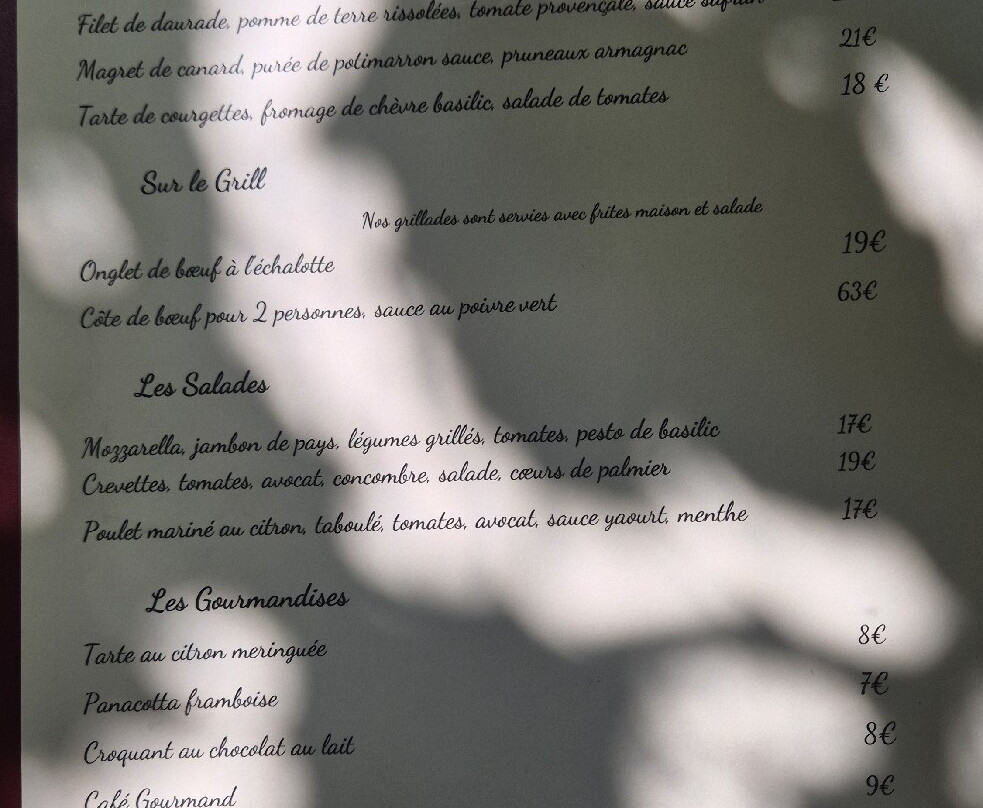 Filet de daurade, pomme de terre rissolées, tomate provençale, sauce
Magret de canard, purée de potimarron sauce, pruneaux armagnac 21€
Tarte de courgettes, fromage de chèvre basilic, salade de tomates 18 €
Sur le Grill
Nos grillades sont servies avec frites maison et salade
Onglet de bœuf à l'échalotte 19€
Côte de bœuf pour 2 personnes, sauce au poivre vert 63€
Les Salades
Mozzarella, jambon de pays, légumes grillés, tomates, pesto de basilic 17€
Crevettes, tomates, avocat, concombre, salade, cœurs de palmier 19€
Poulet mariné au citron, taboulé, tomates, avocat, sauce yaourt, menthe 17€
Les Gourmandises
Tarte au citron meringuée 8€
Panacotta framboise 7€
Croquant au chocolat au lait 8€
Café Gourmand 9€